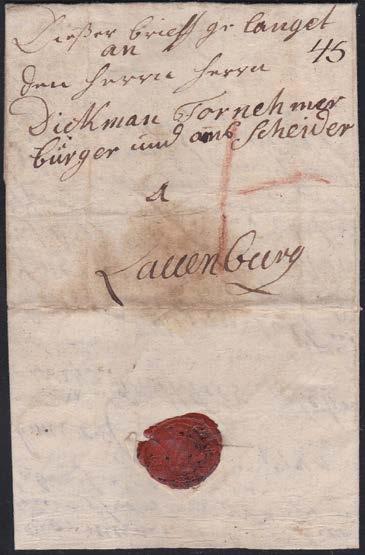 Dießer brieff ge langet
an
45
den Herrn Herrn
Dickman Fornehmer
bürger und Scheider
a
Lauenburg